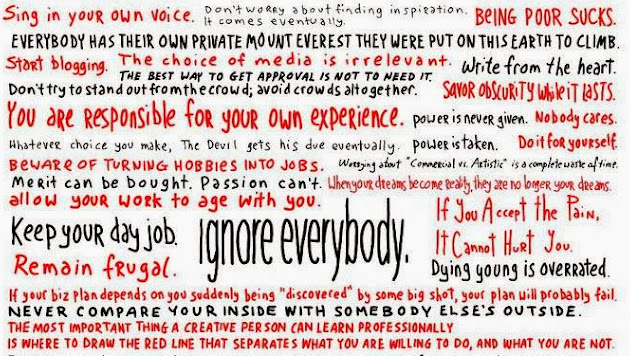 Sing in your own voice. Don't worry about finding inspiration. It comes eventually. BEING POOR SUCKS.
EVERYBODY HAS THEIR OWN PRIVATE MOUNT EVEREST THEY WERE PUT ON THIS EARTH TO CLIMB.
Start blogging. The choice of media is irrelevant. Write from the heart.
THE BEST WAY TO GET APPROVAL IS NOT TO NEED IT.
Don't try to stand out from the crowd; avoid crowds altogether. SAVOR OBSCURITY WHILE IT LASTS.
You are responsible for your own experience. power is never given. Nobody cares.
Whatever choice you make, The Devil gets his due eventually. power is taken. Do it for yourself.
BEWARE OF TURNING HOBBIES INTO JOBS. Worrying about "Commercial vs. Artistic" is a complete waste of time.
Merit can be bought. Passion can't. When your dreams become reality, they are no longer your dreams.
allow your work to age with you.
Keep your day job. ignore everybody. If You Accept the Pain, It Cannot Hurt You.
Remain frugal. Dying young is overrated.
If your biz plan depends on you suddenly being "discovered" by some big shot, your plan will probably fail.
NEVER COMPARE YOUR INSIDE WITH SOMEBODY ELSE'S OUTSIDE.
THE MOST IMPORTANT THING A CREATIVE PERSON CAN LEARN PROFESSIONALLY
IS WHERE TO DRAW THE RED LINE THAT SEPARATES WHAT YOU ARE WILLING TO DO, AND WHAT YOU ARE NOT.